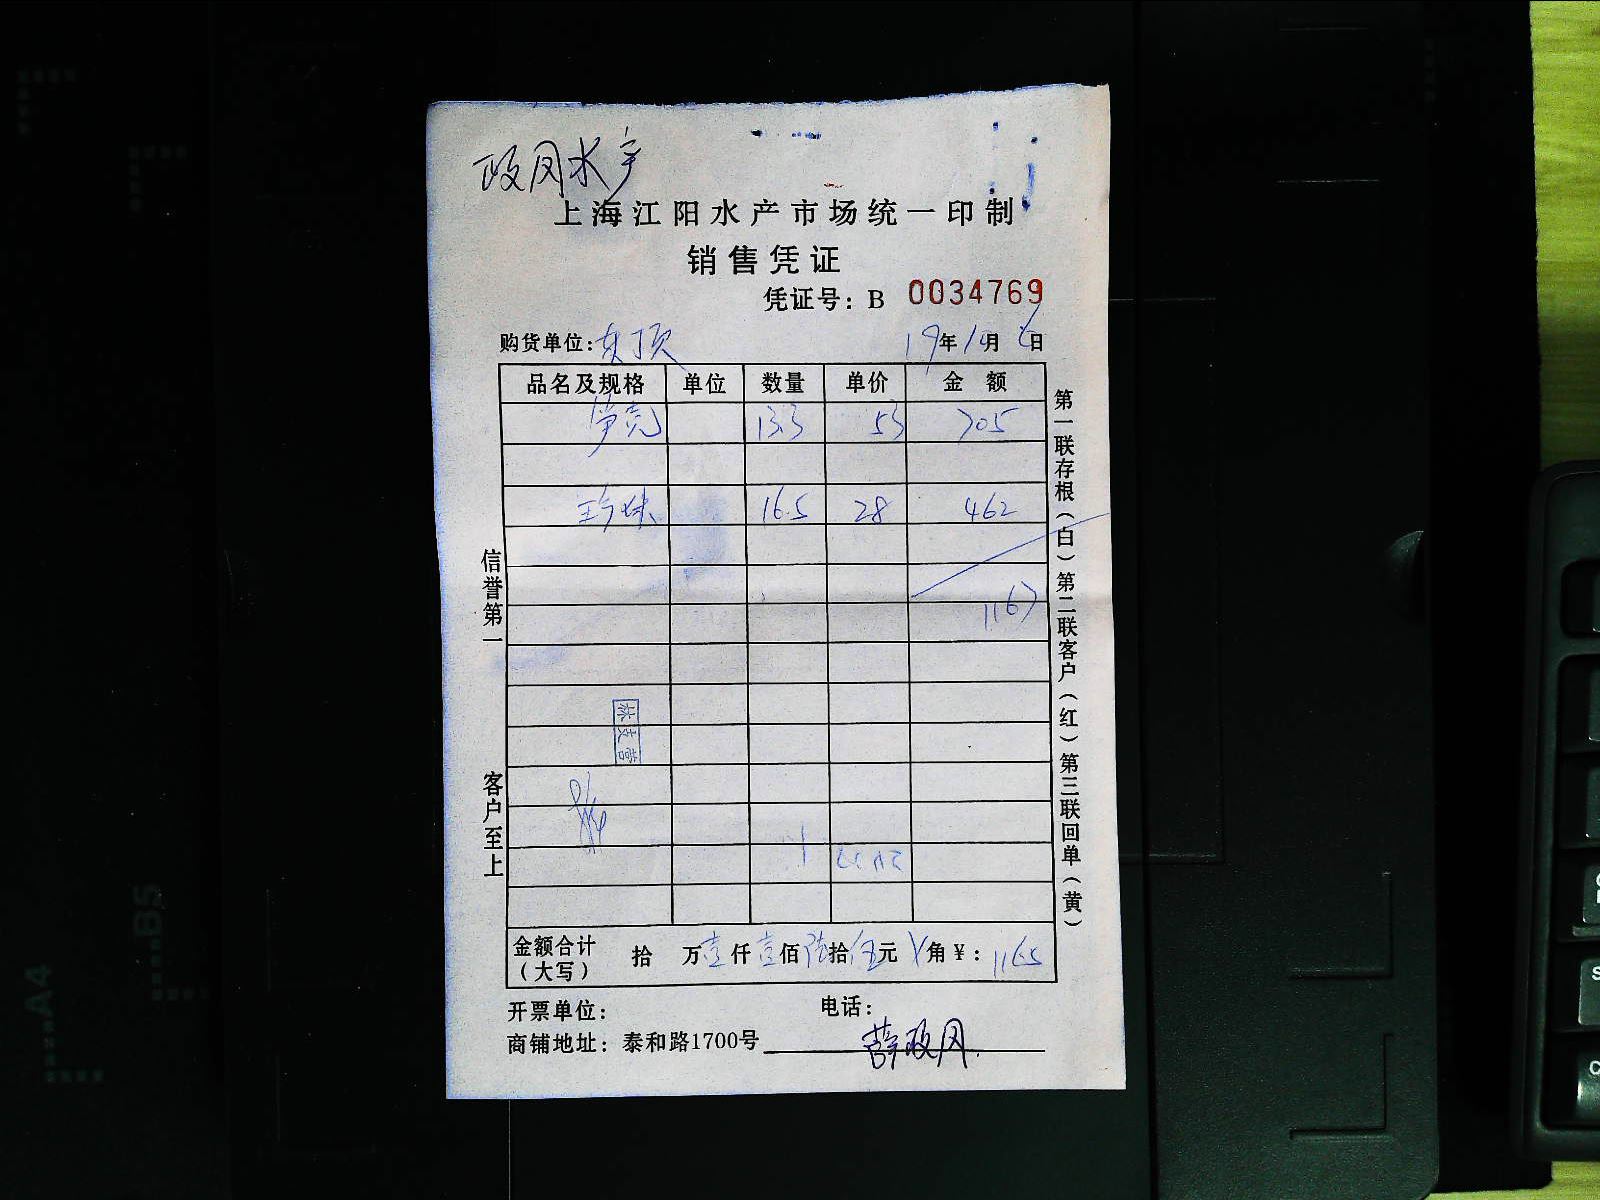 政风水产
上海江阳水产市场统一印制
销售凭证
凭证号：B 0034769
购货单位：东顶 19年10月 日
品名及规格 单位 数量 单价 金额
笋壳 13.3 53 705
珍珠 16.5 28 462
1167
信誉第一
客户至上
第一联存根（白）第二联客户（红）第三联回单（黄）
林友营
金额合计（大写） 拾 万壹仟壹佰陆拾伍元 角¥：1165
开票单位： 电话：
商铺地址：泰和路1700号 薛政风